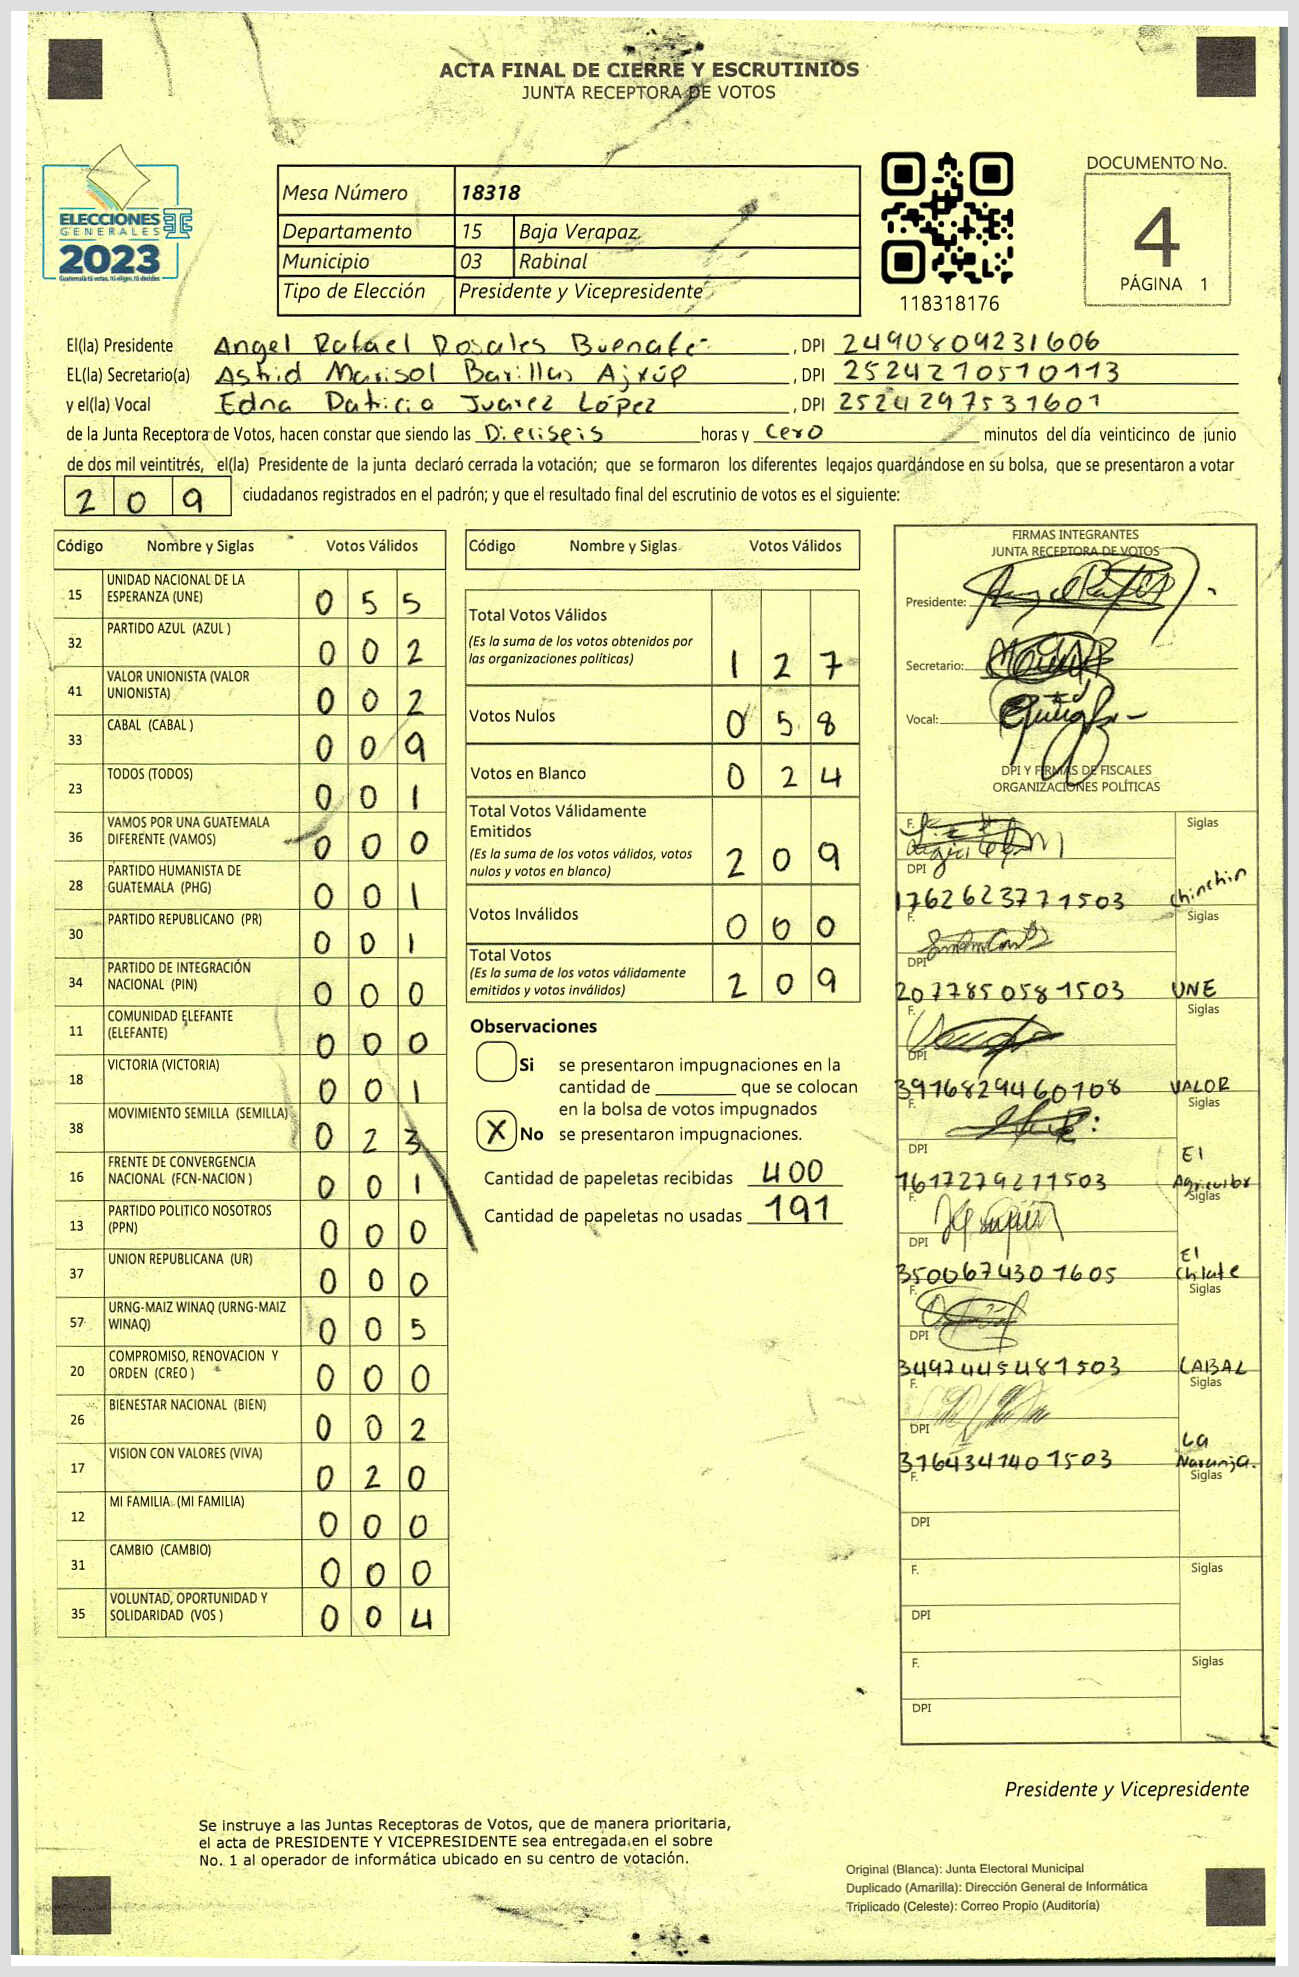 ACTA FINAL DE CIERRE Y ESCRUTINIOS
JUNTA RECEPTORA DE VOTOS
ELECCIONES
GENERALES
2023
Guatemala tú votas, tú eliges, tú decides
Mesa Número 18318
Departamento 15 Baja Verapaz
Municipio 03 Rabinal
Tipo de Elección Presidente y Vicepresidente
118318176
DOCUMENTO No.
4
PÁGINA 1
El(la) Presidente Angel Rafael Rosales Buenafé , DPI 2490809231606
EL(la) Secretario(a) Astrid Marisol Barillas Ajxúp , DPI 2524210510113
y el(la) Vocal Edna Patricia Juarez López , DPI 2524297531601
de la Junta Receptora de Votos, hacen constar que siendo las Dieciseis horas y cero minutos del día veinticinco de junio
de dos mil veintitrés, el(la) Presidente de la junta declaró cerrada la votación; que se formaron los diferentes legajos guardándose en su bolsa, que se presentaron a votar
209 ciudadanos registrados en el padrón; y que el resultado final del escrutinio de votos es el siguiente:
Código Nombre y Siglas Votos Válidos
15 UNIDAD NACIONAL DE LA ESPERANZA (UNE) 0 5 5
32 PARTIDO AZUL (AZUL ) 0 0 2
41 VALOR UNIONISTA (VALOR UNIONISTA) 0 0 2
33 CABAL (CABAL ) 0 0 9
23 TODOS (TODOS) 0 0 1
36 VAMOS POR UNA GUATEMALA DIFERENTE (VAMOS) 0 0 0
28 PARTIDO HUMANISTA DE GUATEMALA (PHG) 0 0 1
30 PARTIDO REPUBLICANO (PR) 0 0 1
34 PARTIDO DE INTEGRACIÓN NACIONAL (PIN) 0 0 0
11 COMUNIDAD ELEFANTE (ELEFANTE) 0 0 0
18 VICTORIA (VICTORIA) 0 0 1
38 MOVIMIENTO SEMILLA (SEMILLA) 0 2 3
16 FRENTE DE CONVERGENCIA NACIONAL (FCN-NACION ) 0 0 1
13 PARTIDO POLITICO NOSOTROS (PPN) 0 0 0
37 UNION REPUBLICANA (UR) 0 0 0
57 URNG-MAIZ WINAQ (URNG-MAIZ WINAQ) 0 0 5
20 COMPROMISO, RENOVACION Y ORDEN (CREO ) 0 0 0
26 BIENESTAR NACIONAL (BIEN) 0 0 2
17 VISION CON VALORES (VIVA) 0 2 0
12 MI FAMILIA (MI FAMILIA) 0 0 0
31 CAMBIO (CAMBIO) 0 0 0
35 VOLUNTAD, OPORTUNIDAD Y SOLIDARIDAD (VOS ) 0 0 4
Código Nombre y Siglas Votos Válidos
Total Votos Válidos
(Es la suma de los votos obtenidos por
las organizaciones políticas) 1 2 7
Votos Nulos 0 5 8
Votos en Blanco 0 2 4
Total Votos Válidamente
Emitidos
(Es la suma de los votos válidos, votos
nulos y votos en blanco) 2 0 9
Votos Inválidos 0 0 0
Total Votos
(Es la suma de los votos válidamente
emitidos y votos inválidos) 2 0 9
Observaciones
Si se presentaron impugnaciones en la
cantidad de ________ que se colocan
en la bolsa de votos impugnados
X No se presentaron impugnaciones.
Cantidad de papeletas recibidas 400
Cantidad de papeletas no usadas 191
FIRMAS INTEGRANTES
JUNTA RECEPTORA DE VOTOS
Presidente:
Secretario:
Vocal:
DPI Y FIRMAS DE FISCALES
ORGANIZACIONES POLÍTICAS
F. Siglas
DPI
1762623771503 Chinchin
F. Siglas
DPI
2077850581503 UNE
F. Siglas
DPI
3976829460108 VALOR
F. Siglas
DPI
1617279211503 El Agricultor
F. Siglas
DPI
3500674301605 El Chilate
F. Siglas
DPI
3492445481503 CABAL
F. Siglas
DPI
3164341401503 La Naranja.
F. Siglas
DPI
F. Siglas
DPI
F. Siglas
DPI
Presidente y Vicepresidente
Se instruye a las Juntas Receptoras de Votos, que de manera prioritaria,
el acta de PRESIDENTE Y VICEPRESIDENTE sea entregada en el sobre
No. 1 al operador de informática ubicado en su centro de votación.
Original (Blanca): Junta Electoral Municipal
Duplicado (Amarilla): Dirección General de Informática
Triplicado (Celeste): Correo Propio (Auditoría)